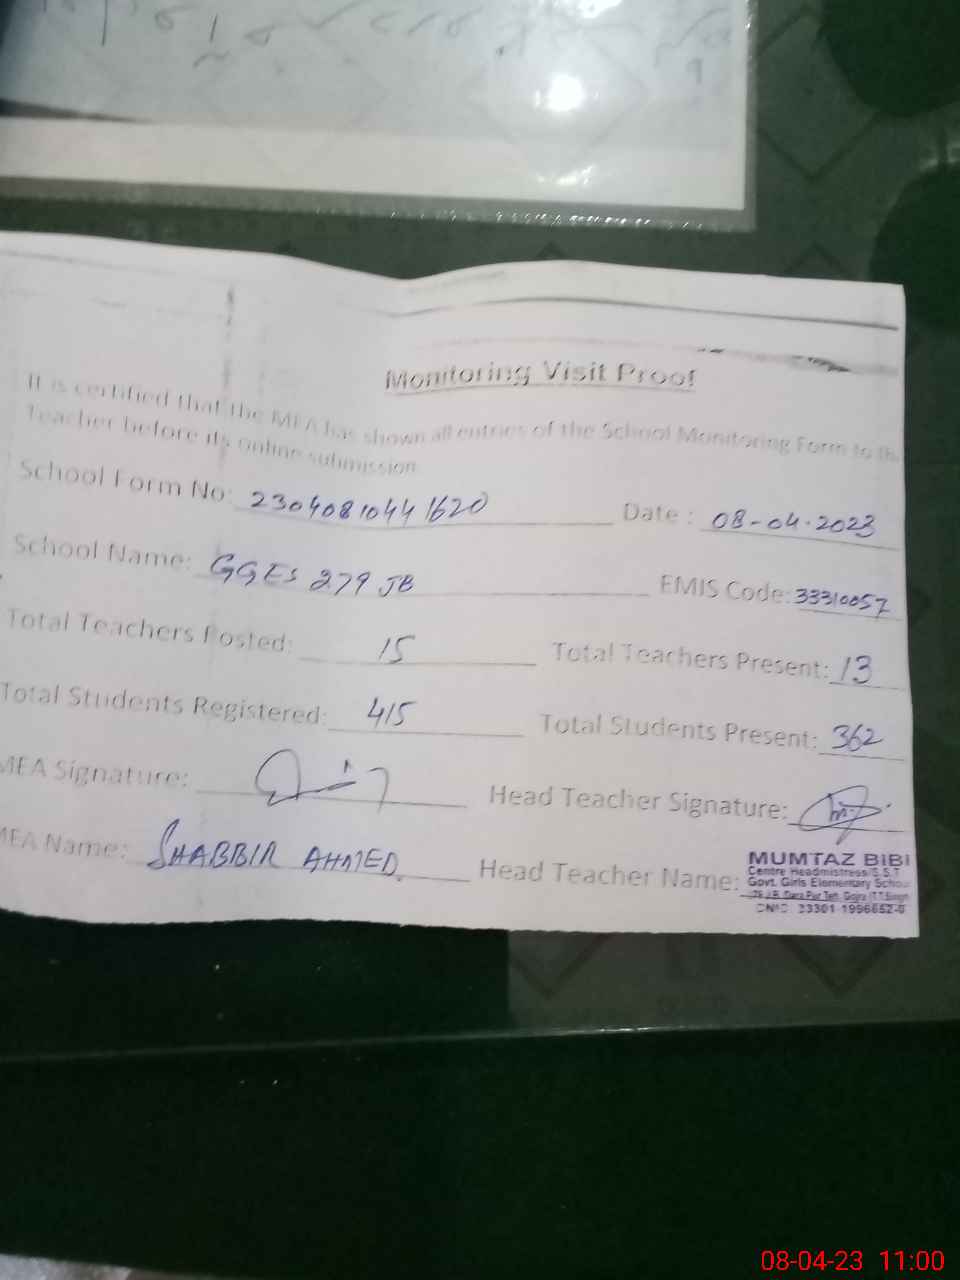 Monitoring Visit Proof
It is certified that the MEA has shown all entries of the School Monitoring Form to the
Teacher before its online submission
School Form No: 23040810441620 Date : 08-04-2023
School Name: GGES 279 JB EMIS Code: 33310057
Total Teachers Posted: 15 Total Teachers Present: 13
Total Students Registered: 415 Total Students Present: 362
MEA Signature: Head Teacher Signature:
MEA Name: SHABBIR AHMED Head Teacher Name:
MUMTAZ BIBI
Centre Headmistress/S.S.T
Govt. Girls Elementary School
08-04-23 11:00